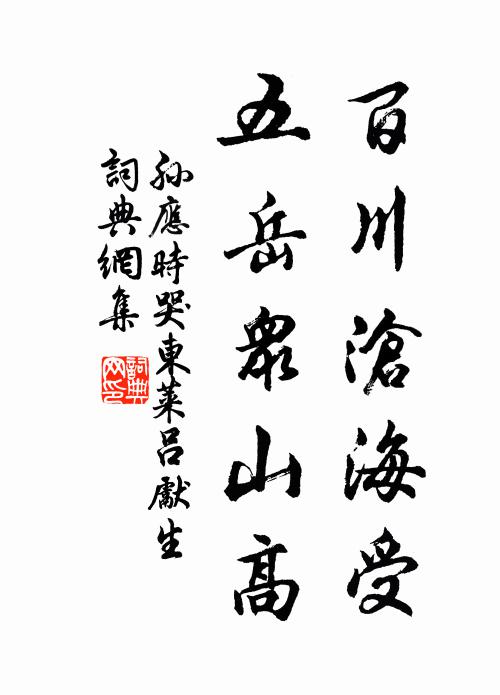 百川滄海受
五岳眾山高
孫應時哭東萊呂獻生
詞典網集
詞典網印